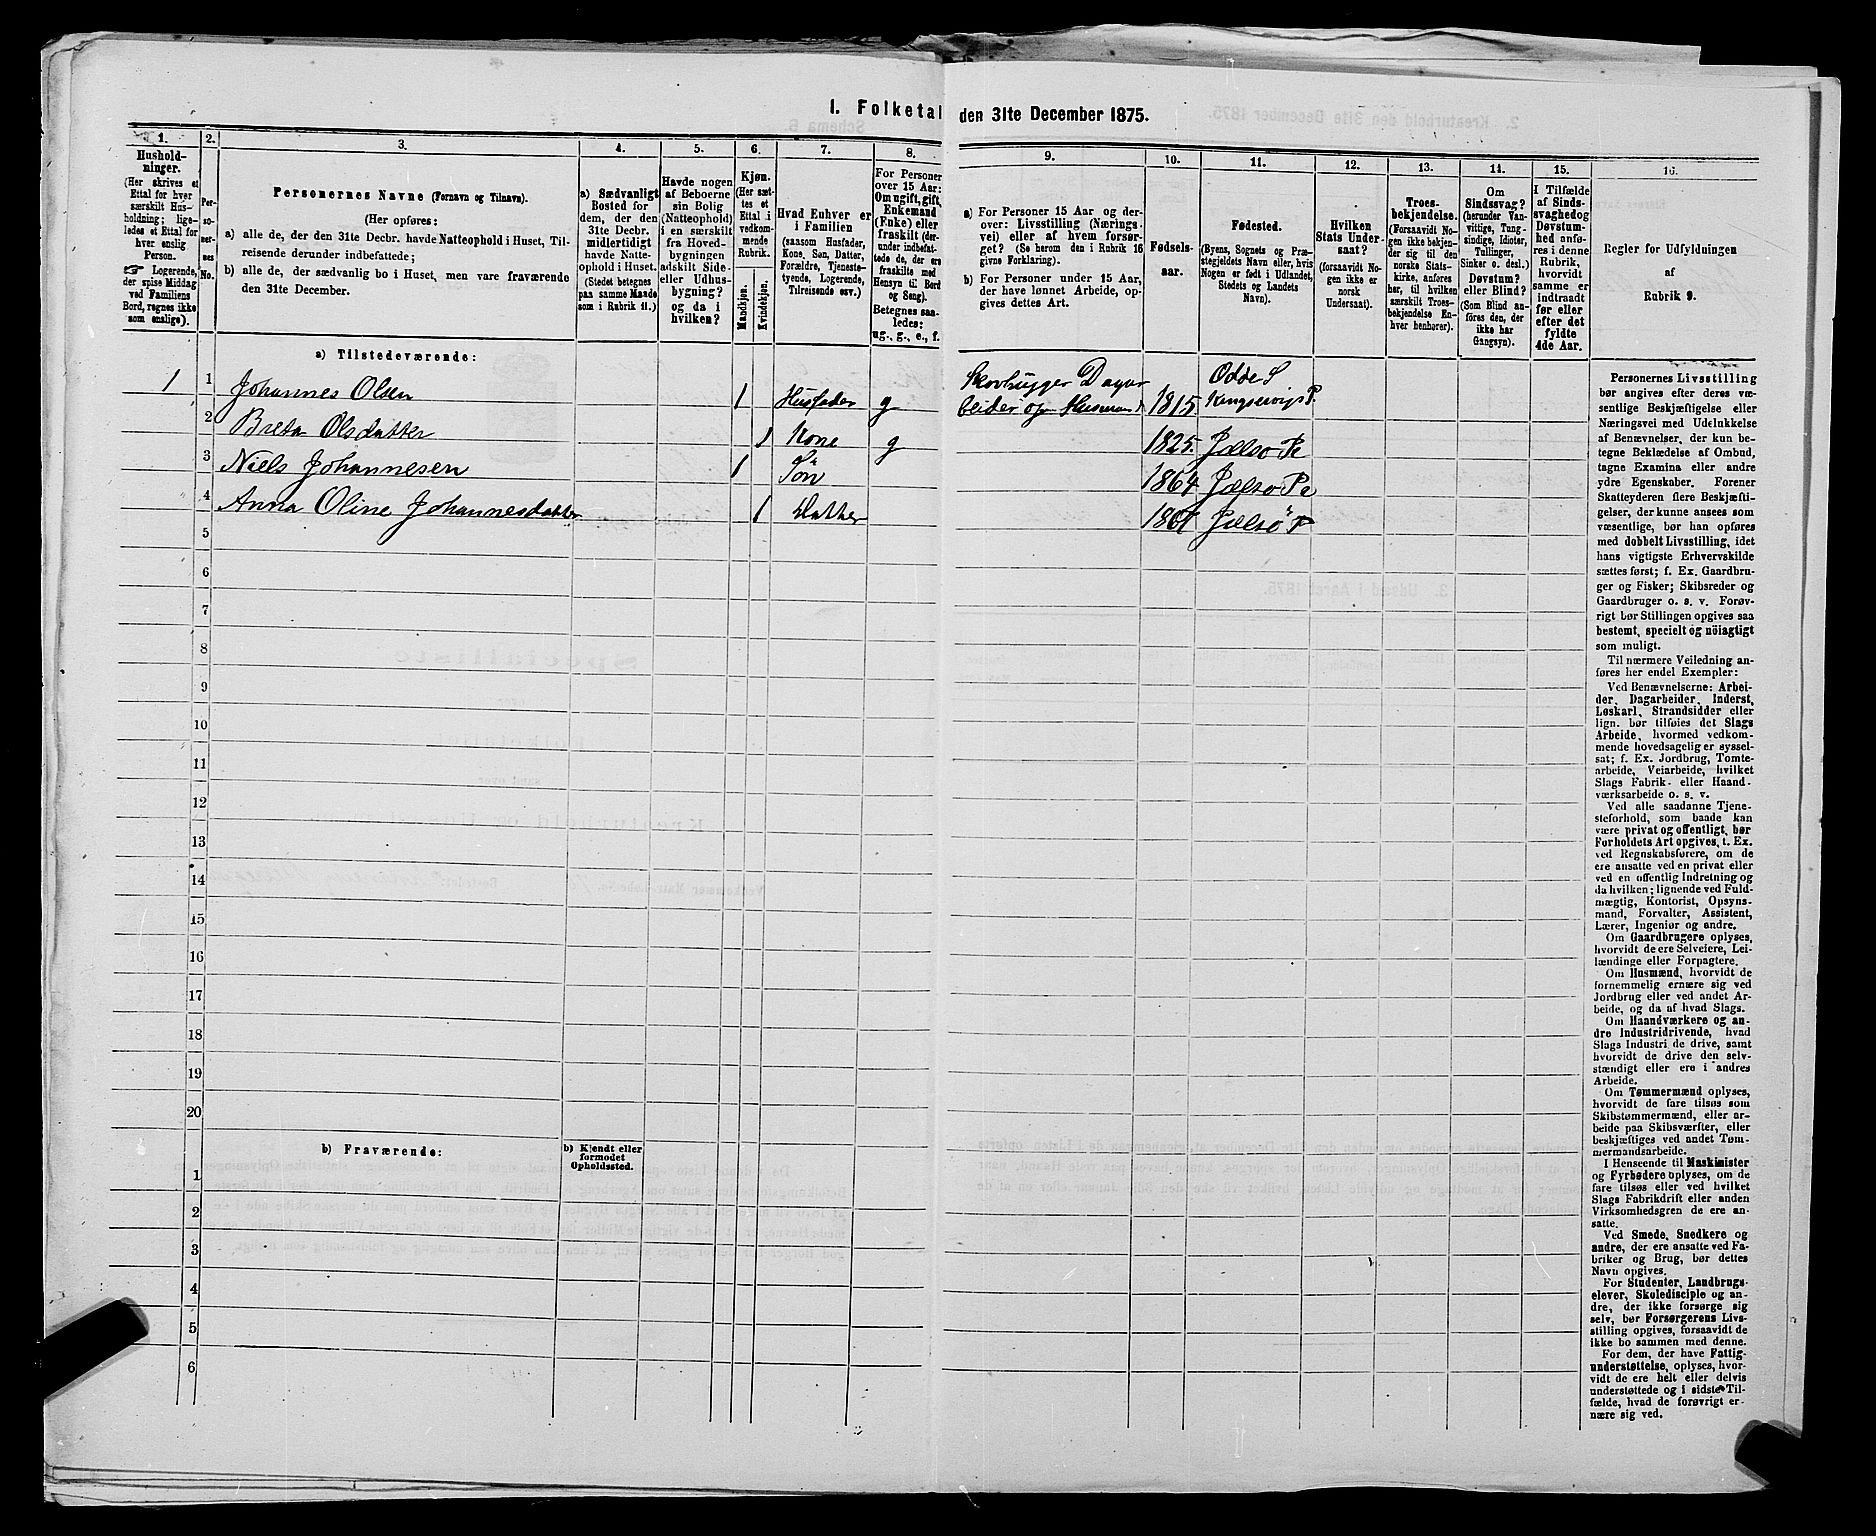 I. Folketal den 31te December 1875.
1.
Hushold-
ninger.
(Her skrives et
Ettal for hver
særskilt Hus-
holdning; lige-
ledes et Ettal for
hver enslig
Person.
☞ Logerende,
der spise Middag
ved Familiens
Bord, regnes ikke
som enslige).
2.
Per-
so-
ner-
nes
No.
3.
Personernes Navne (Fornavn og Tilnavn).
(Her opføres:
a) alle de, der den 31te Decbr. havde Natteophold i Huset, Til-
reisende derunder indbefattede;
b) alle de, der sædvanlig bo i Huset, men vare fraværende
den 31te December.
4.
a) Sædvanligt
Bosted for
dem, der den
31te Decbr.
midlertidigt
havde Natte-
ophold i Huset.
(Stedet betegnes
paa samme Maade
som i Rubrik 11.)
5.
Havde nogen
af Beboerne
sin Bolig
(Natteophold)
i en særskilt
fra Hoved-
bygningen
adskilt Side-
eller Udhus-
bygning?
og da i
hvilken?
6.
Kjøn.
(Her sæt-
tes et
Ettal i
vedkom-
mende
Rubrik.
Mandkjøn.
Kvindekjøn.
7.
Hvad Enhver er
i Familien
(saasom Husfader,
Kone, Søn, Datter,
Forældre, Tjeneste-
tyende, Logerende,
Tilreisende osv.)
8.
For Personer
over 15 Aar:
Om ugift, gift,
Enkemand
(Enke) eller
fraskilt (der-
under indbefat-
tede de, der ere
fraskilte med
Hensyn til Bord
og Seng).
Betegnes saa-
ledes:
ug., g., e., f.
9.
a) For Personer 15 Aar og der-
over: Livsstilling (Nærings-
vei) eller af hvem forsør-
get? (Se herom den i Rubrik 16
givne Forklaring).
b) For Personer under 15 Aar,
der have lønnet Arbeide, op-
gives dettes Art.
10.
Fødsels-
aar.
11.
Fødested.
(Byens, Sognets og Præ-
stegjeldets Navn eller, hvis
Nogen er født i Udlandet,
Stedets og Landets
Navn).
12.
Hvilken
Stats Under-
saat?
(forsaavidt No-
gen ikke er
norsk
Undersaat).
13.
Troes-
bekjendelse.
(Forsaavidt No-
gen ikke bekjen-
der sig til den
norske Stats-
kirke, anføres
her, til hvilken
særskilt Troes-
bekjendelse En-
hver henhører).
14.
Om
Sindssvag?
(herunder Van-
vittige, Tung-
sindige, Idioter,
Tullinger,
Sinker o. desl.)
Døvstum?
eller Blind?
(Som Blind an-
føres den, der
ikke har
Gangsyn).
15.
I Tilfælde
af Sinds-
svaghed og
Døvstum-
hed anfø-
res i denne
Rubrik,
hvorvidt
samme er
indtraadt
før eller
efter det
fyldte
4de Aar.
16.
Regler for Udfyldningen
af
Rubrik 9.
a) Tilstedeværende:
1 1 Johannes Olsen 1 Husfader g Skovhugger Dagar
beider og Husmand 1815 Odde S
Kingservigs P.
2 Breta Olsdatter 1 Kone g 1825. Jælsø Pe
3 Niels Johannesen 1 Søn 1864 Jælsø Pe
4 Anna Oline Johannesdatter 1 Datter 1867 Jælsø P
5
6
7
8
9
10
11
12
13
14
15
16
17
18
19
20
b) Fraværende:
b) Kjendt eller
formodet
Opholdssted.
1
2
3
4
5
6
Personernes Livsstilling
bør angives efter deres væ-
sentlige Beskjæftigelse eller
Næringsvei med Udelukkelse
af Benævnelser, der kun be-
tegne Beklædelse af Ombud,
tagne Examina eller andre
ydre Egenskaber. Forener
Skatteyderen flere Beskjæfti-
gelser, der kunne ansees som
væsentlige, bør han opføres
med dobbelt Livsstilling, idet
hans vigtigste Erhvervskilde
sættes først; f. Ex. Gaardbru-
ger og Fisker; Skibsreder og
Gaardbruger o. s. v. Forøv-
rigt bør Stillingen opgives saa
bestemt, specielt og nöiagtigt
som muligt.
Til nærmere Veiledning an-
føres her endel Exempler:
Ved Benævnelserne: Arbei-
der, Dagarbeider, Inderst,
Løskarl, Strandsidder eller
lign. bør tilføies det Slags
Arbeide, hvormed vedkom-
mende hovedsagelig er syssel-
sat; f. Ex. Jordbrug, Tomte-
arbeide, Veiarbeide, hvilket
Slags Fabrik- eller Haand-
værksarbeide o. s. v.
Ved alle saadanne Tjene-
steforhold, som baade kan
være privat og offentligt, bør
Forholdets Art opgives, t. Ex.
ved Regnskabsførere, om de
ere ansatte ved en privat eller
ved en offentlig Indretning og
da hvilken; lignende ved Fuld-
mægtig, Kontorist, Opsyns-
mand, Forvalter, Assistent,
Lærer, Ingeniør og andre.
Om Gaardbrugere oplyses,
hvorvidt de ere Selveiere, Lei-
lændinge eller Forpagtere.
Om Husmænd, hvorvidt de
fornemmelig ernære sig ved
Jordbrug eller ved andet Ar-
beide, og da af hvad Slags.
Om Haandværkere og an-
dre Industridrivende, hvad
Slags Industri de drive, samt
hvorvidt de drive den selv-
stændigt eller ere i andres
Arbeide.
Om Tømmermænd oplyses,
hvorvidt de fare tilsøs som
Skibstømmermænd, eller ar-
beide paa Skibsværfter, eller
beskjæftiges ved andet Tøm-
mermandsarbeide.
I Henseende til Maskinister
og Fyrbødere oplyses, om de
fare tilsøs eller ved hvilket
Slags Fabrikdrift eller anden
Virksomhedsgren de ere an-
satte.
Ved Smede, Snedkere og
andre, der ere ansatte ved Fa-
briker og Brug, bør dettes
Navn opgives.
For Studenter, Landbrugs-
elever, Skoledisciple og an-
dre, der ikke forsørge sig
selv, bør Forsørgerens Livs-
stilling opgives, forsaavidt de
ikke bo sammen med denne.
For dem, der have Fattig-
understøttelse, oplyses, hvor-
vidt de ere helt eller delvis
understøttede og i sidste Til-
fælde, hvad de forøvrigt er-
nære sig ved.